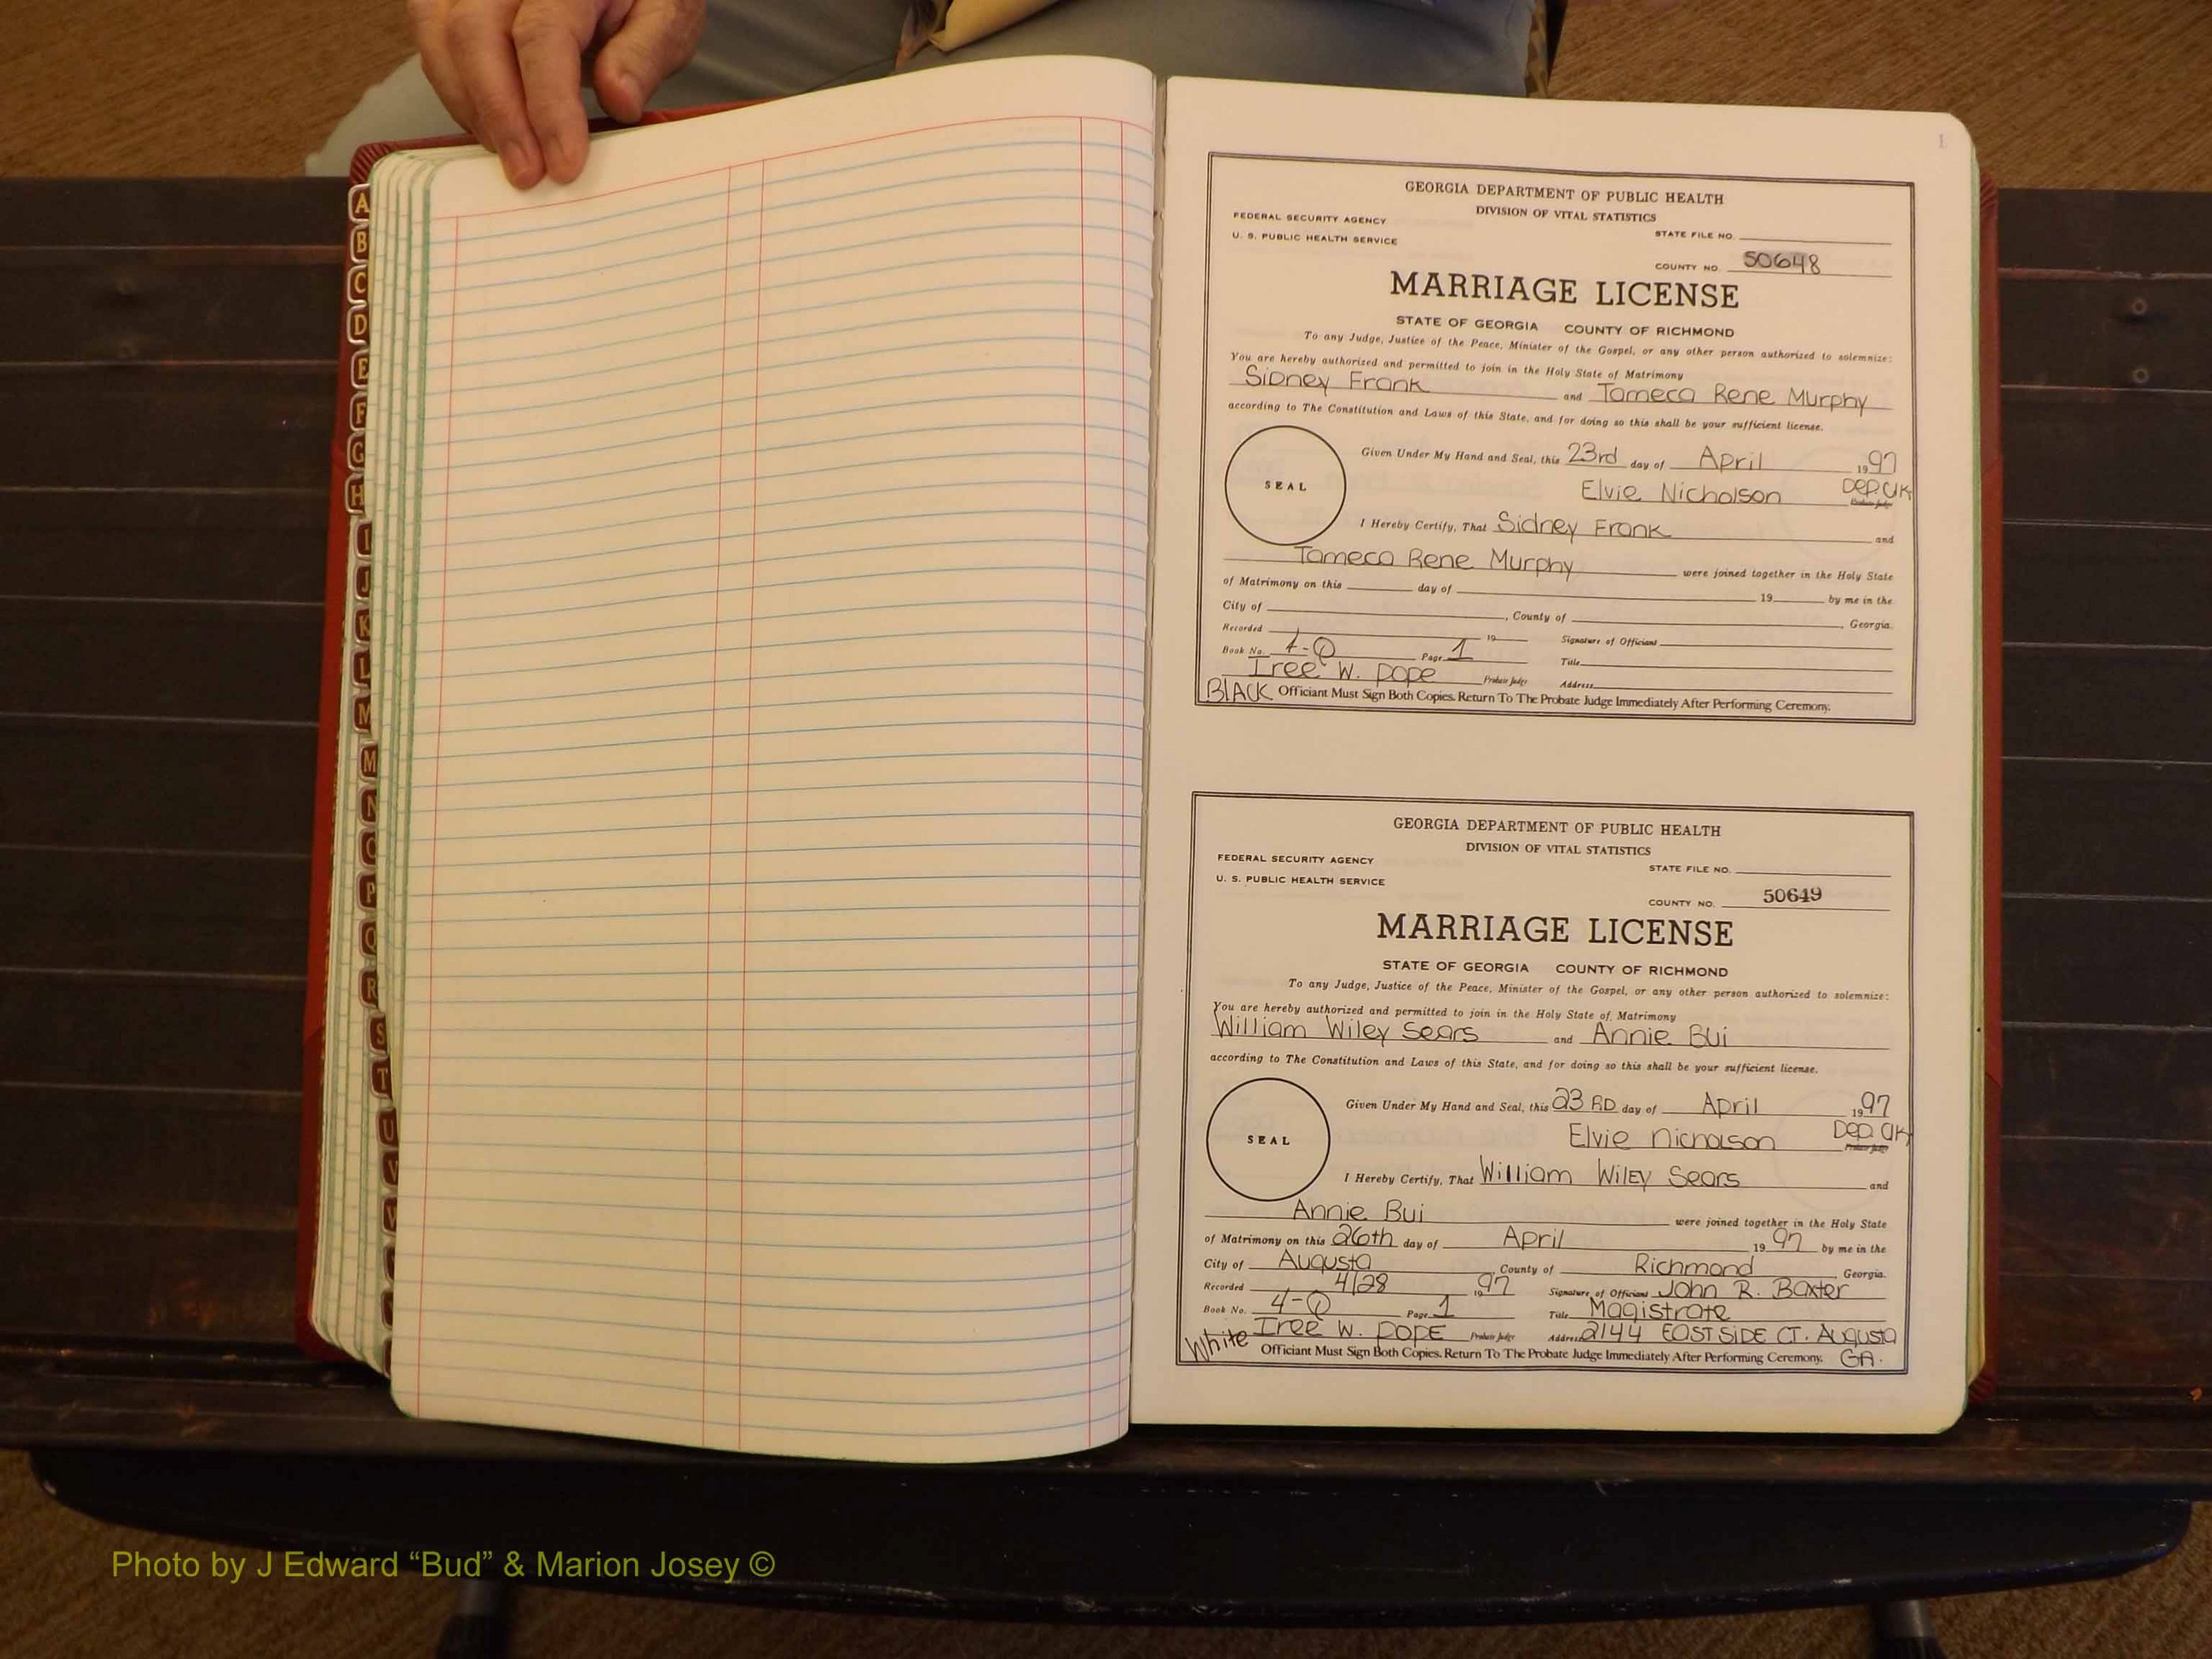 A
B
C
D
E
F
G
H
I
J
K
L
M
M
N
O
P
Q
R
S
T
U
V
1
GEORGIA DEPARTMENT OF PUBLIC HEALTH
DIVISION OF VITAL STATISTICS
FEDERAL SECURITY AGENCY
U. S. PUBLIC HEALTH SERVICE
STATE FILE NO.
COUNTY NO. 50648
MARRIAGE LICENSE
STATE OF GEORGIA COUNTY OF RICHMOND
To any Judge, Justice of the Peace, Minister of the Gospel, or any other person authorized to solemnize:
You are hereby authorized and permitted to join in the Holy State of Matrimony
Sidney Frank and Tameca Rene Murphy
according to The Constitution and Laws of this State, and for doing so this shall be your sufficient license.
SEAL
Given Under My Hand and Seal, this 23rd day of April 1997
Elvie Nicholson Dep. Clk
Probate Judge
I Hereby Certify, That Sidney Frank and
Tameca Rene Murphy were joined together in the Holy State
of Matrimony on this day of 19 by me in the
City of , County of , Georgia.
Recorded 19 Signature of Officiant
Book No. 4-Q Page 1 Title
Iree W. Pope Probate Judge Address
BLACK Officiant Must Sign Both Copies. Return To The Probate Judge Immediately After Performing Ceremony.
GEORGIA DEPARTMENT OF PUBLIC HEALTH
DIVISION OF VITAL STATISTICS
FEDERAL SECURITY AGENCY
U. S. PUBLIC HEALTH SERVICE
STATE FILE NO.
COUNTY NO. 50649
MARRIAGE LICENSE
STATE OF GEORGIA COUNTY OF RICHMOND
To any Judge, Justice of the Peace, Minister of the Gospel, or any other person authorized to solemnize:
You are hereby authorized and permitted to join in the Holy State of Matrimony
William Wiley Sears and Annie Bui
according to The Constitution and Laws of this State, and for doing so this shall be your sufficient license.
SEAL
Given Under My Hand and Seal, this 23 RD day of April 1997
Elvie Nicholson Dep. Clk
Probate Judge
I Hereby Certify, That William Wiley Sears and
Annie Bui were joined together in the Holy State
of Matrimony on this 26th day of April 1997 by me in the
City of Augusta , County of Richmond , Georgia.
Recorded 4/28 1997 Signature of Officiant John R. Baxter
Book No. 4-Q Page 1 Title Magistrate
Iree W. POPE Probate Judge Address 2144 EAST SIDE CT. Augusta
White Officiant Must Sign Both Copies. Return To The Probate Judge Immediately After Performing Ceremony. GA.
Photo by J Edward “Bud” & Marion Josey ©